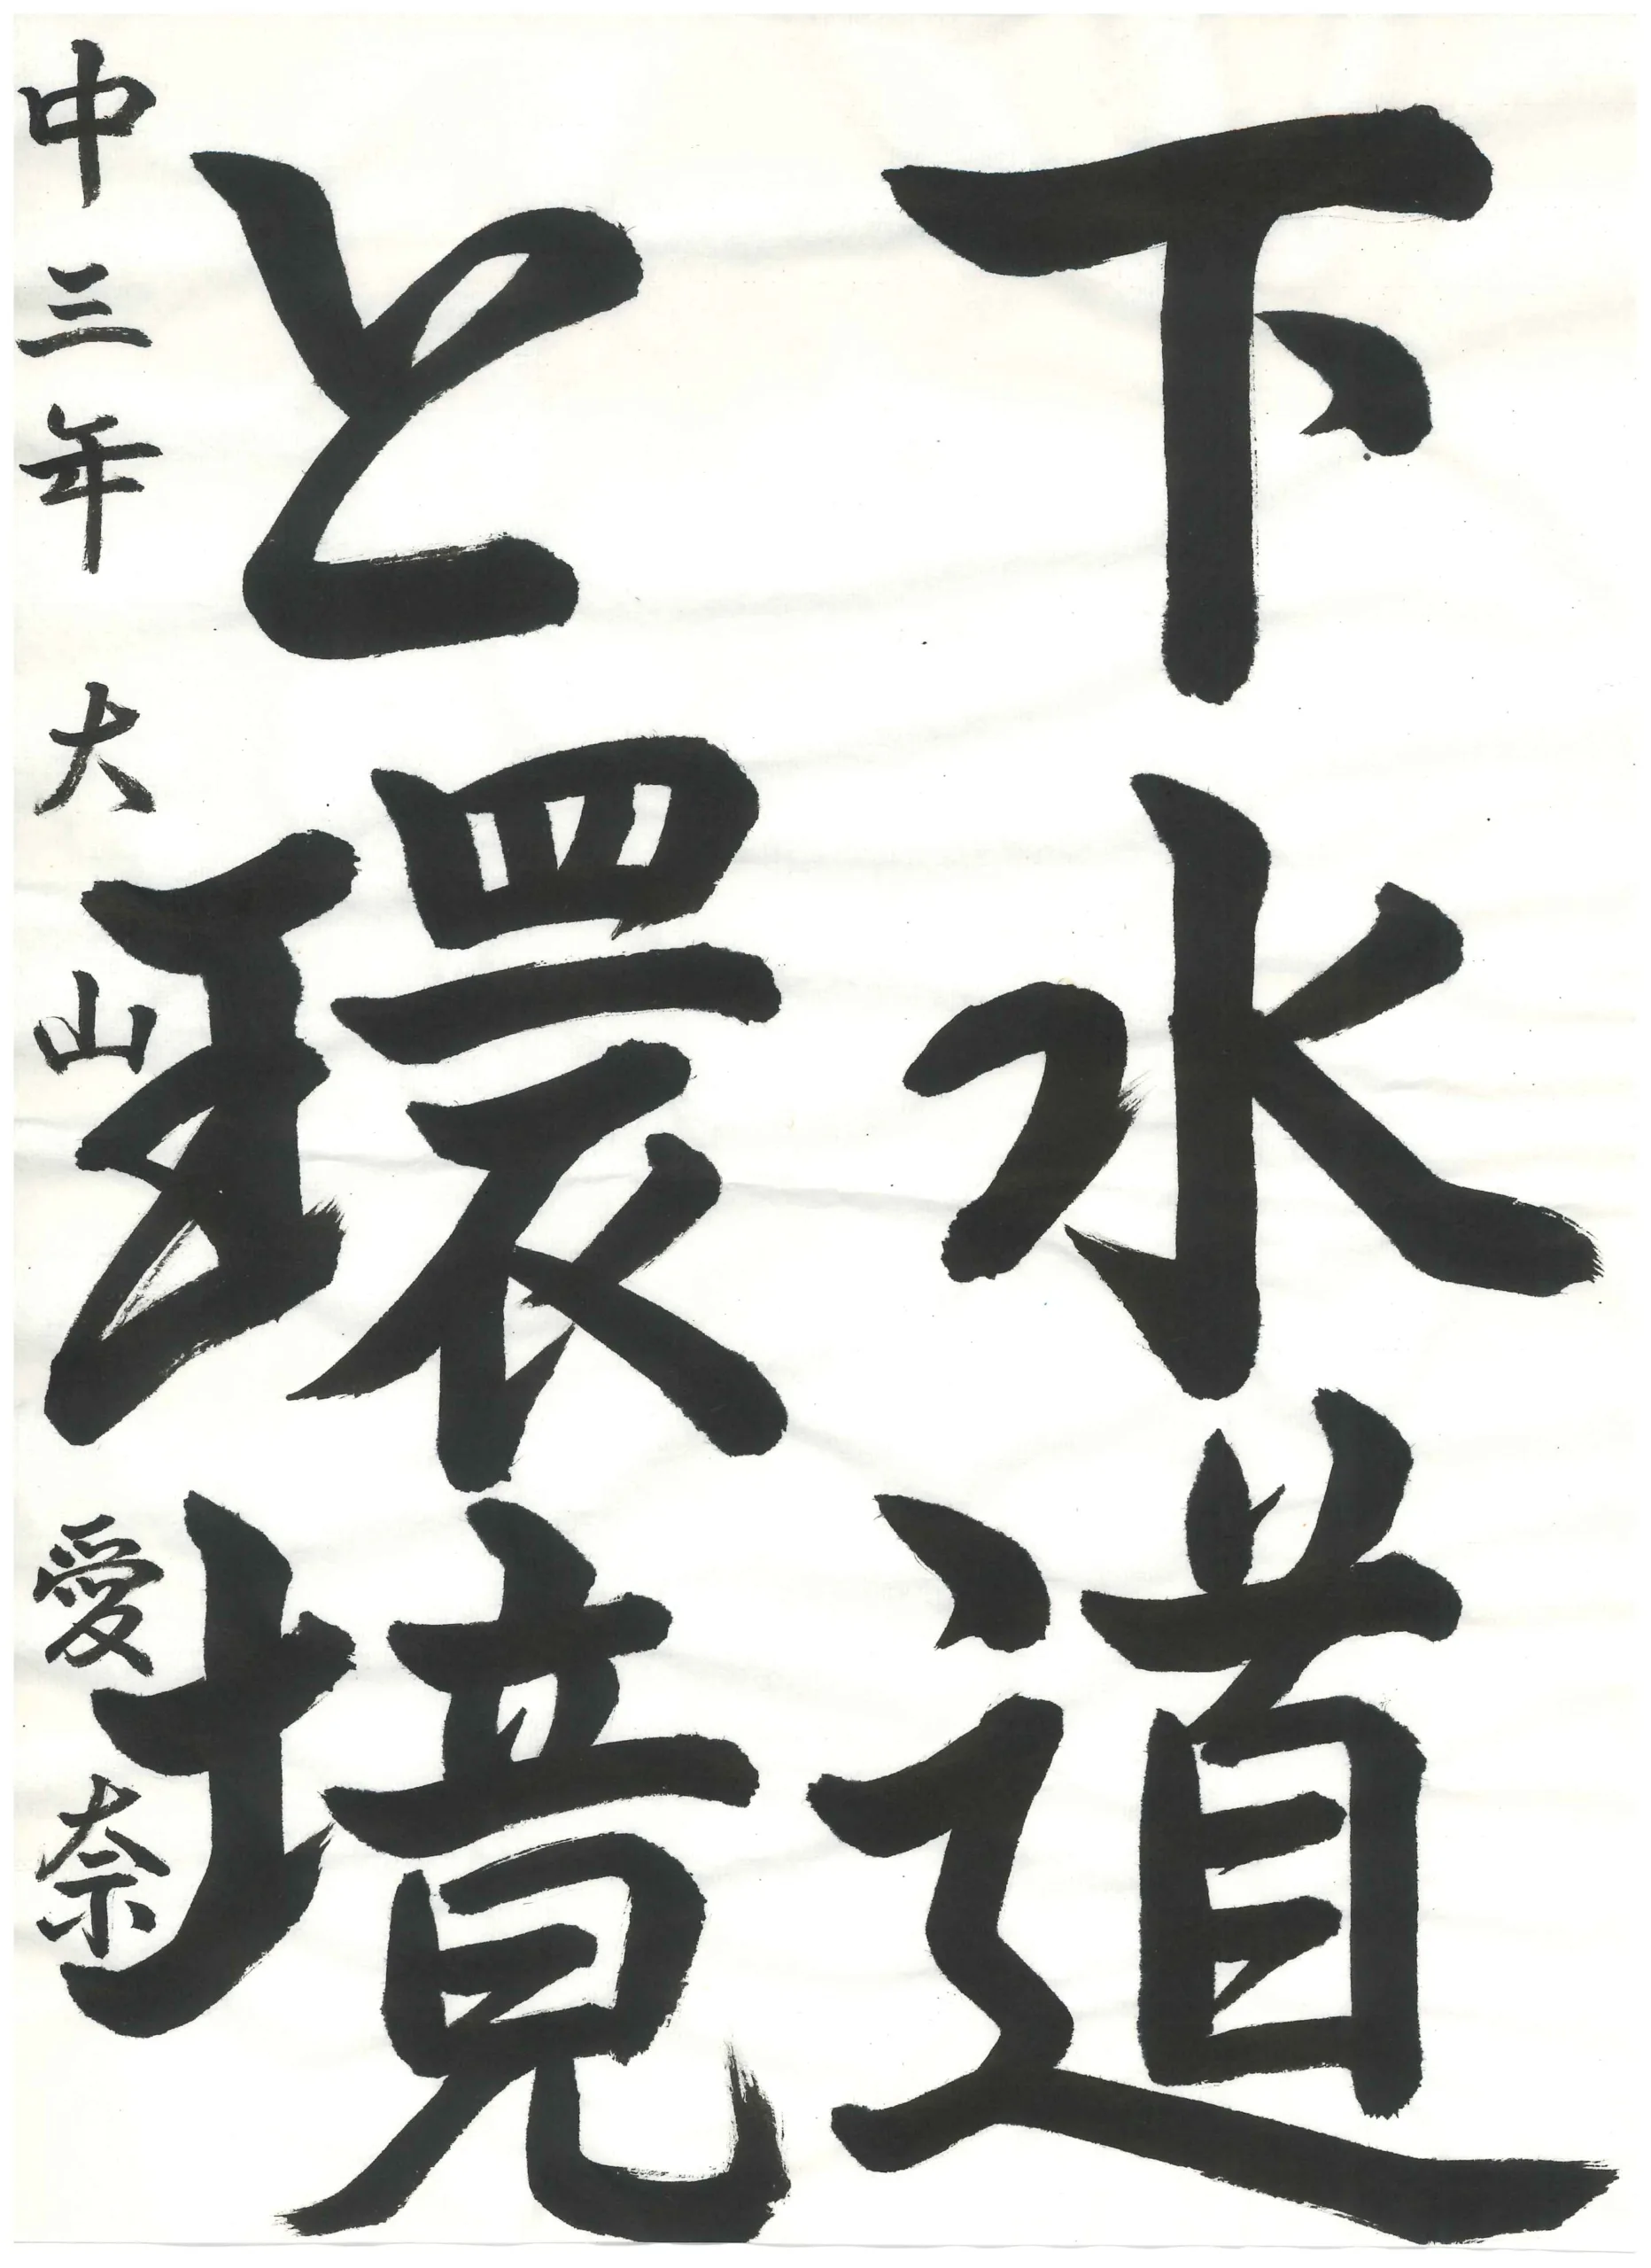 下水道
と環境
中三年 大山愛奈